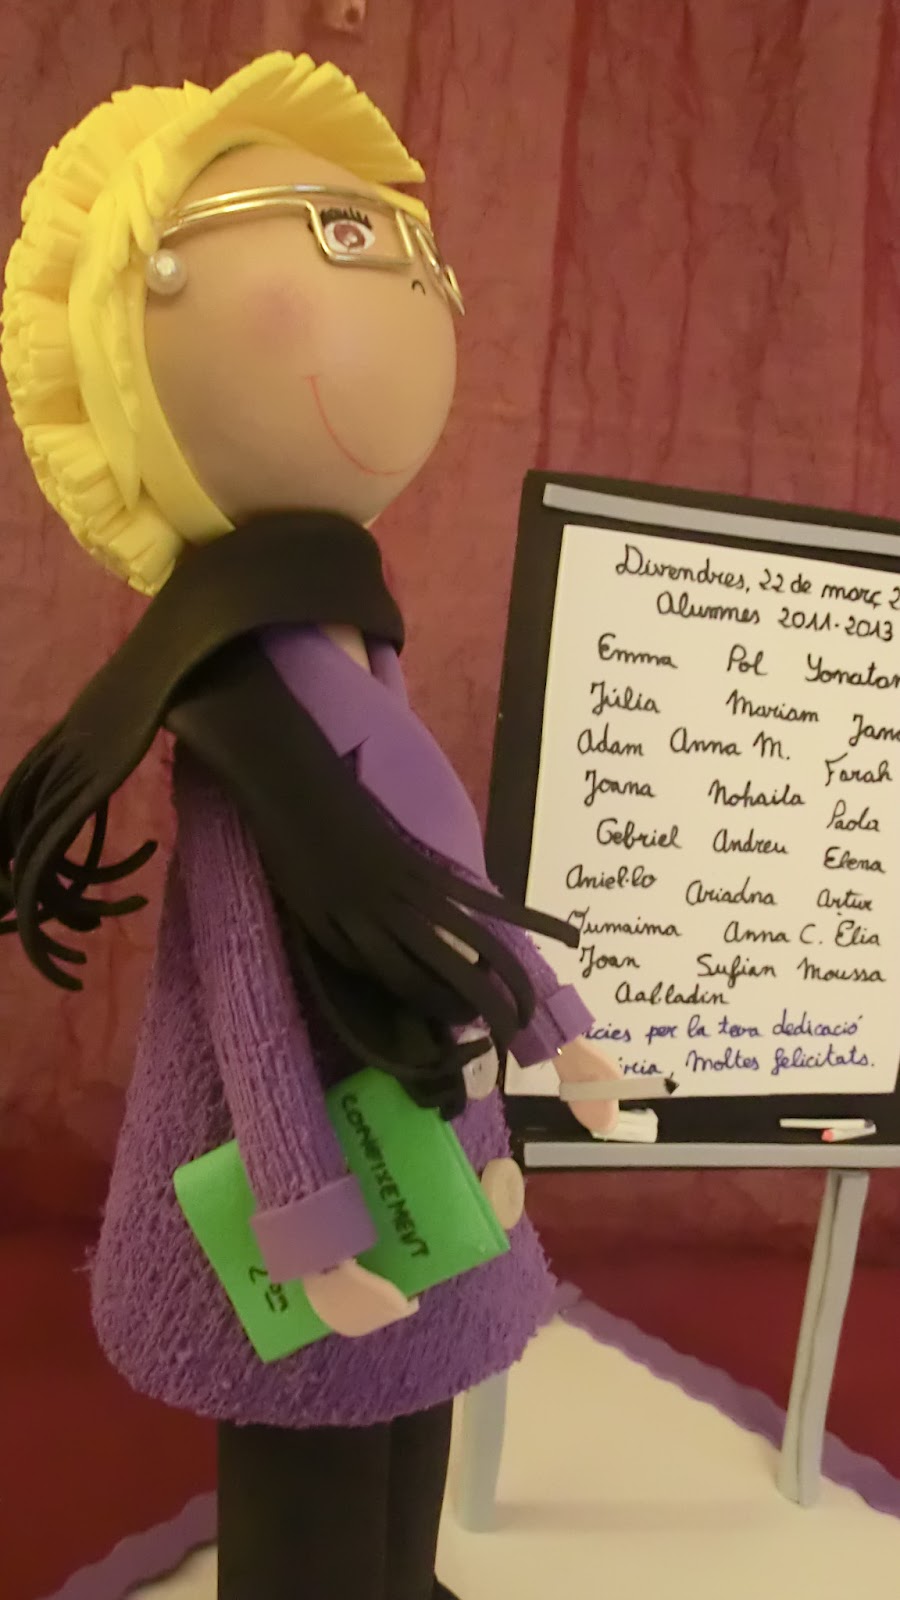 Divendres, 22 de març 2
Alumnes 2011-2013
Emma Pol Yonatan
Júlia Mariam
Adam Anna M. Farah
Joana Nohaila Paola
Gebriel Andreu Elena
Aniel·lo Ariadna Artur
Jumaima Anna C. Èlia
Joan Sufian Moussa
Aal·ladin
per la teva dedicació
Moltes felicitats.
CONEIXEMENT
2on